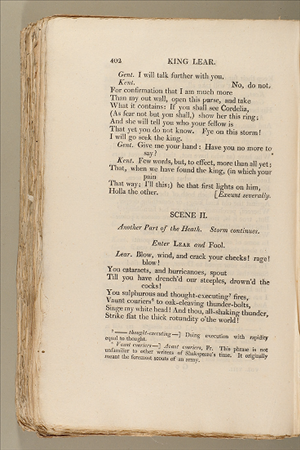 402 KING LEAR.
Gent. I will talk further with you.
Kent. No, do not.
For confirmation that I am much more
Than my out wall, open this purse, and take
What it contains: If you shall see Cordelia,
(As fear not but you shall,) show her this ring;
And she will tell you who your fellow is
That yet you do not know. Fye on this storm!
I will go seek the king.
Gent. Give me your hand: Have you no more to
say?
Kent. Few words, but, to effect, more than all yet;
That, when we have found the king, (in which your
pain
That way; I'll this;) he that first lights on him,
Holla the other. [Exeunt severally.
SCENE II.
Another Part of the Heath. Storm continues.
Enter LEAR and Fool.
Lear. Blow, wind, and crack your cheeks! rage!
blow!
You cataracts, and hurricanoes, spout
Till you have drench'd our steeples, drown'd the
cocks!
You sulphurous and thought-executing⁷ fires,
Vaunt couriers⁸ to oak-cleaving thunder-bolts,
Singe my white head! And thou, all-shaking thunder,
Strike flat the thick rotundity o'the world!
⁷ —— thought-executing—] Doing execution with rapidity
equal to thought.
⁸ Vaunt couriers—] Avant couriers, Fr. This phrase is not
unfamiliar to other writers of Shakspeare's time. It originally
meant the foremost scouts of an army.